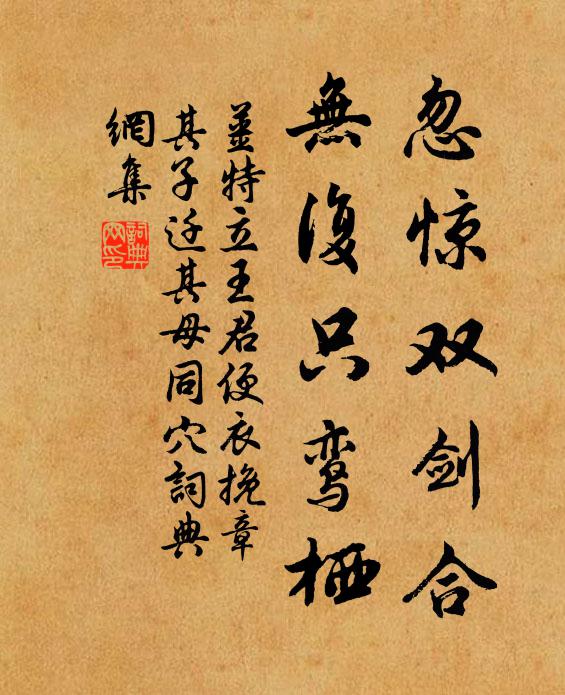 忽惊双剑合
無復只鸾栖
姜特立王君便衣挽章
其子迁其母同穴詞典
網集
詞典網印